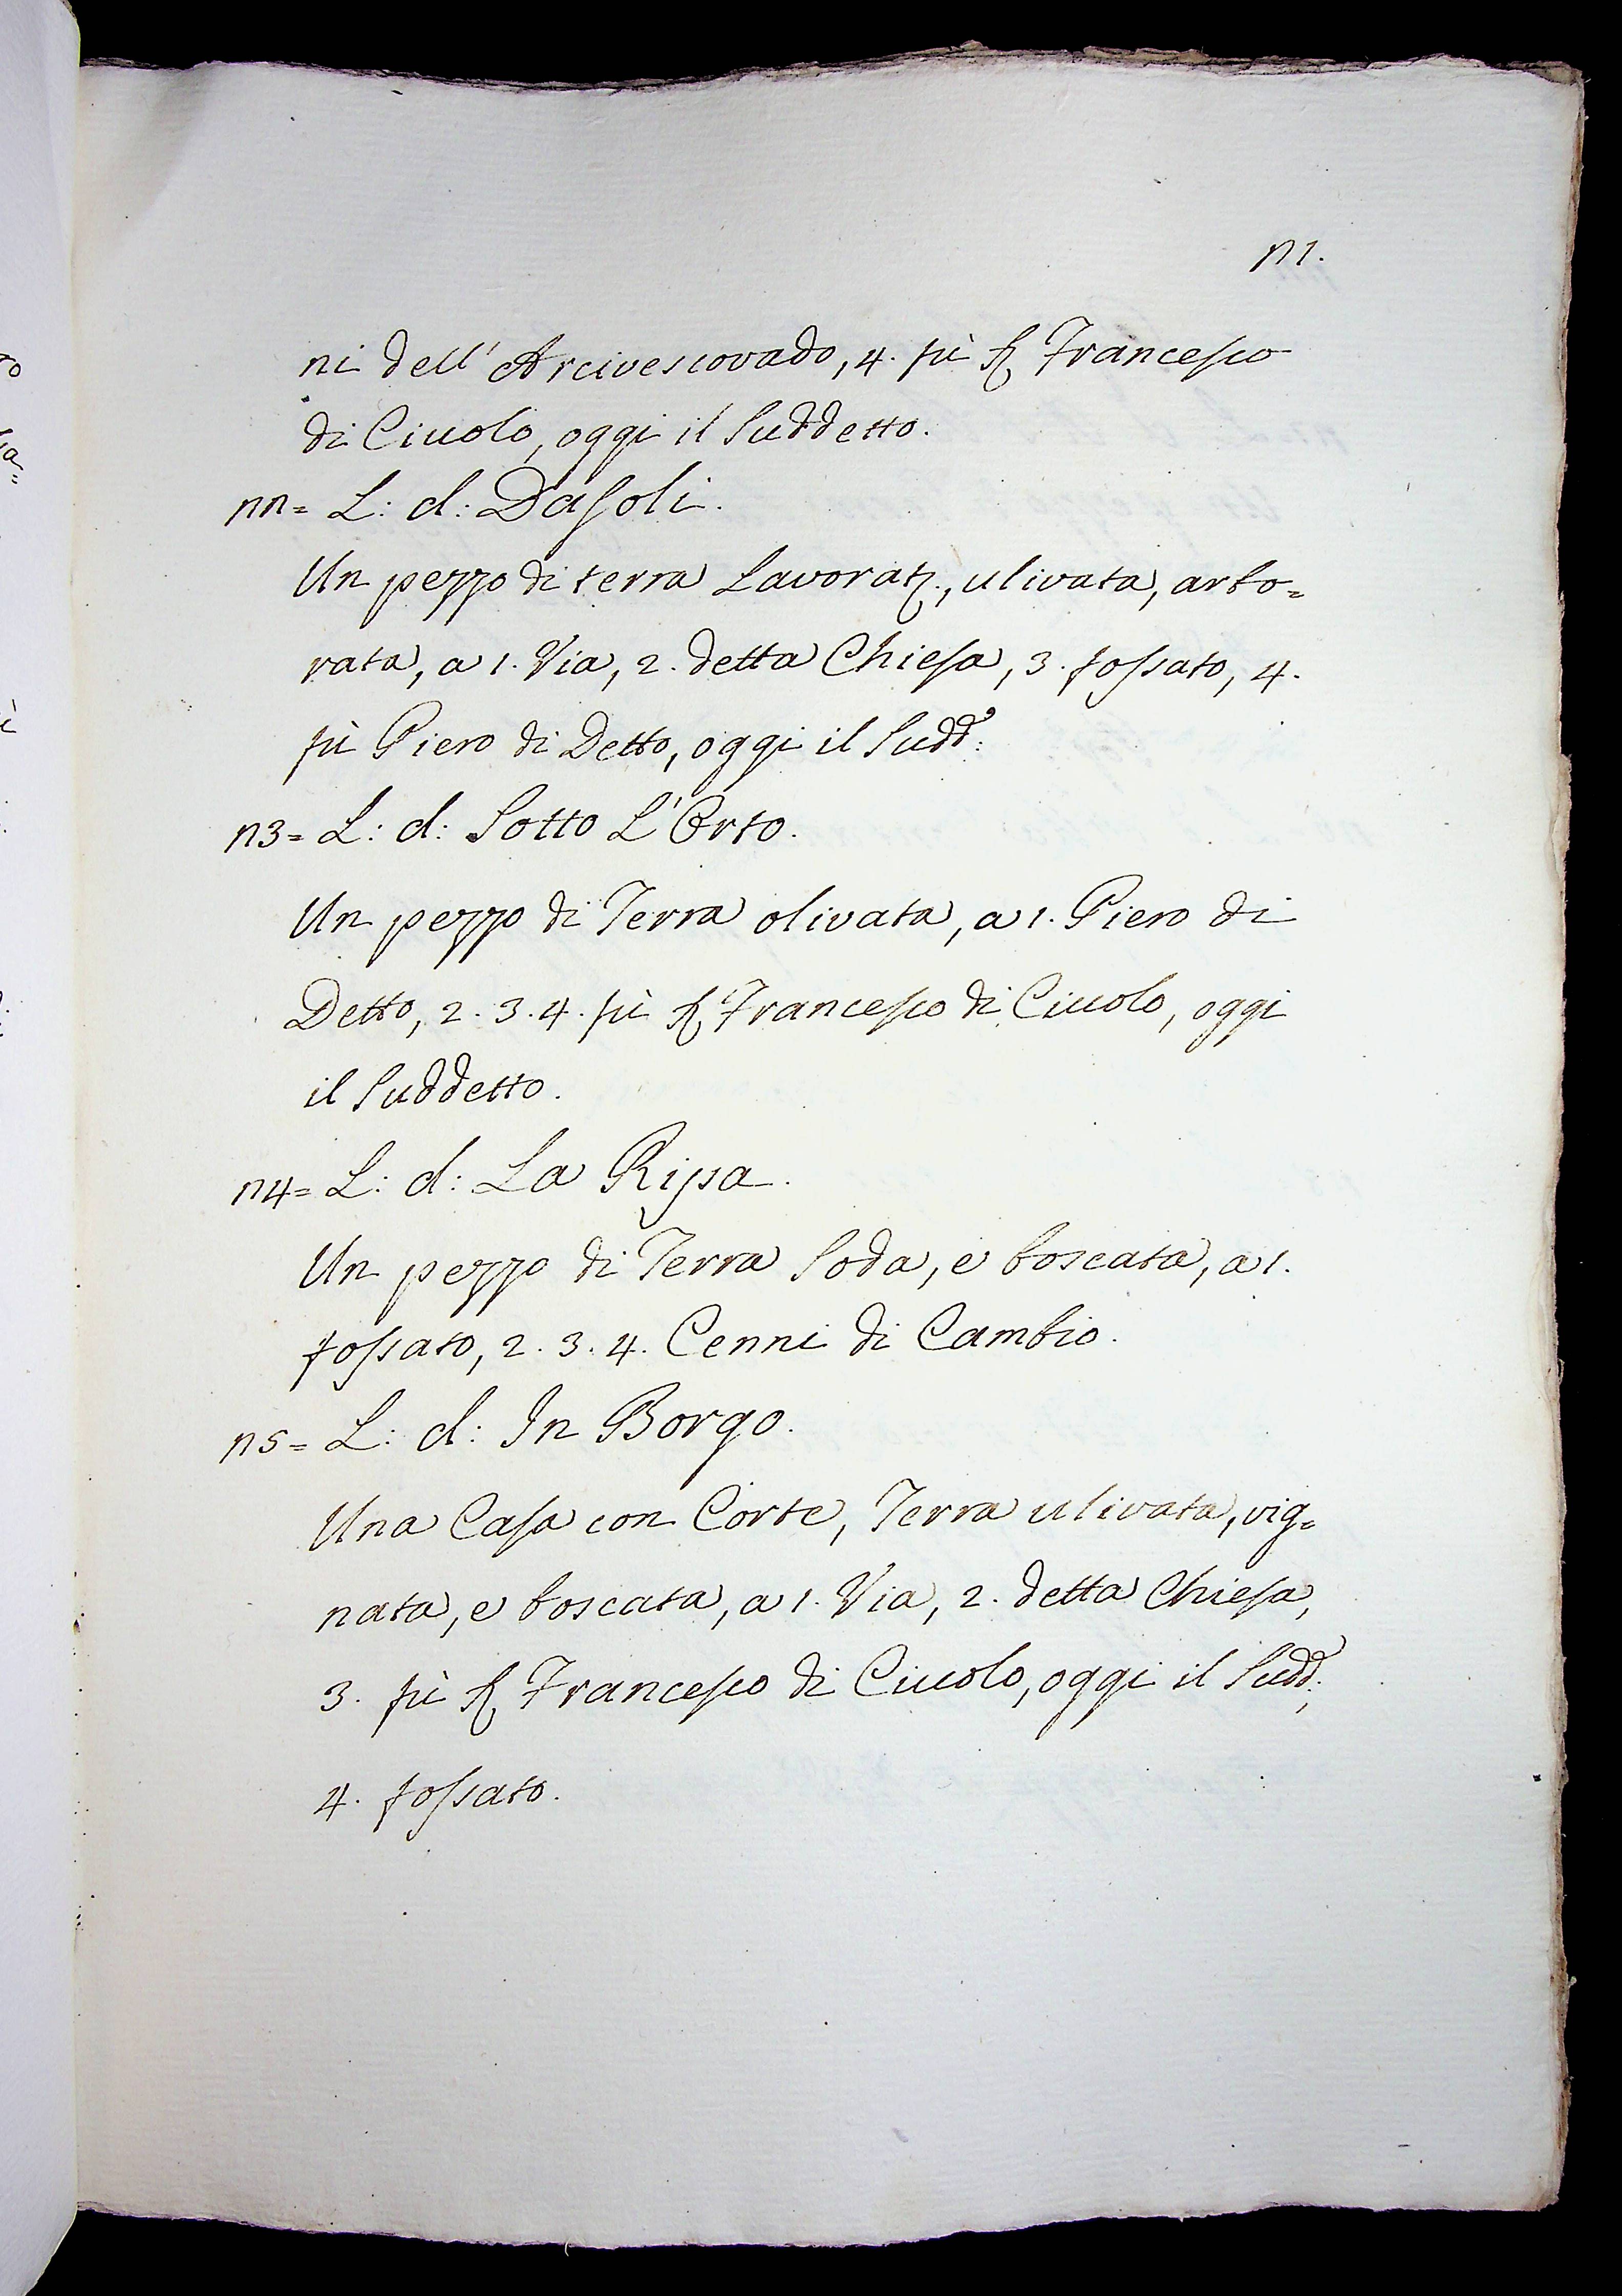 21.
ni dell'Arcivescovado, 4. fù S. Francesco
di Ciuolo, oggi il Suddetto.
22= L: d: Dasoli.
Un pezzo di terra Lavorat., ulivata, arbo=
rata, a 1. Via, 2. detta Chiesa, 3. fossato, 4.
fù Piero di Detto, oggi il Sudd:
23= L: d: Sotto L'Orto.
Un pezzo di Terra olivata, a 1. Piero di
Detto, 2. 3. 4. fù S. Francesco di Ciuolo, oggi
il Suddetto.
24= L: d: La Ripa.
Un pezzo di Terra Soda, e boscata, a 1.
fossato, 2. 3. 4. Cenni di Cambio.
25= L: d: In Borgo.
Una Casa con Corte, Terra ulivata, vig=
nata, e boscata, a 1. Via, 2. detta Chiesa,
3. fù S. Francesco di Ciuolo, oggi il Sudd:,
4. fossato.